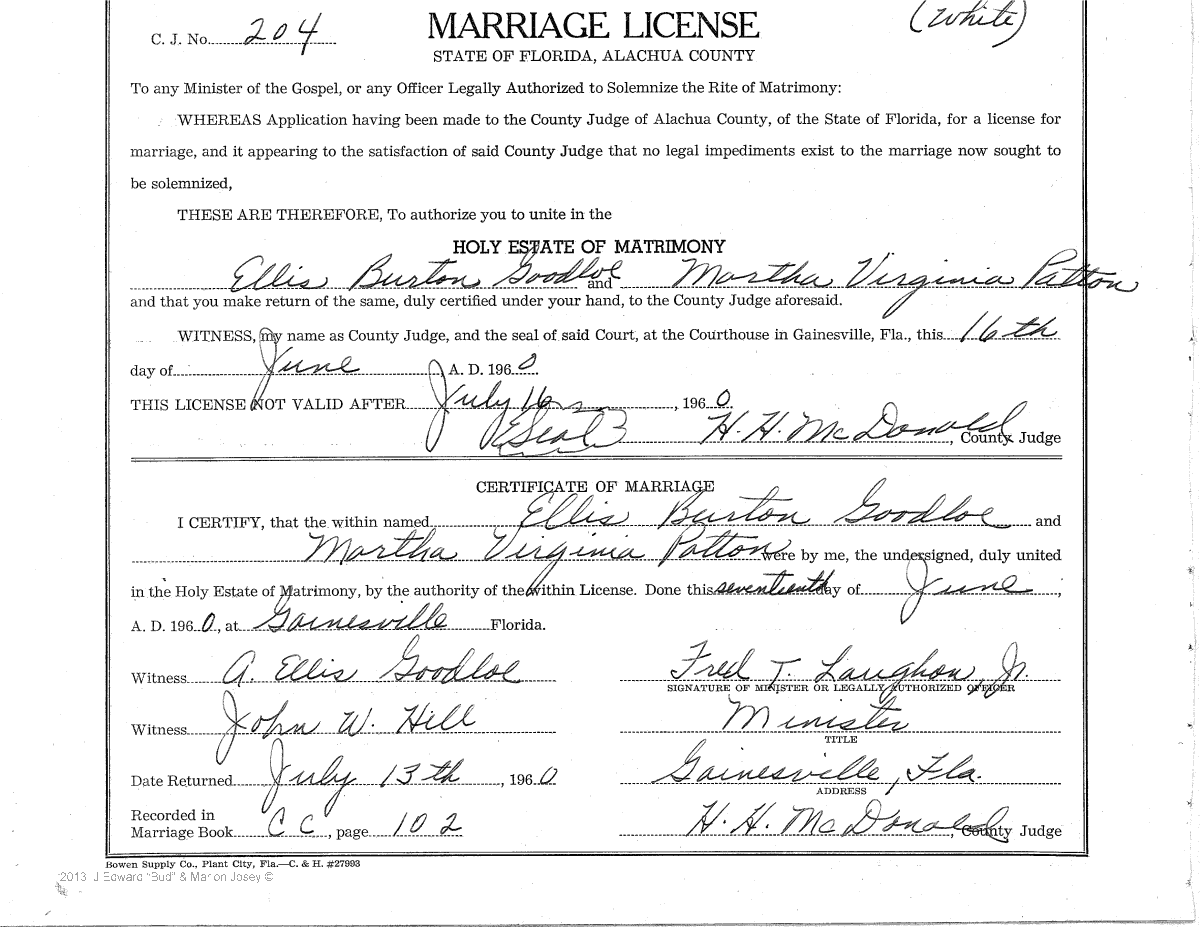 C. J. No. 204
MARRIAGE LICENSE
(White)
STATE OF FLORIDA, ALACHUA COUNTY
To any Minister of the Gospel, or any Officer Legally Authorized to Solemnize the Rite of Matrimony:
WHEREAS Application having been made to the County Judge of Alachua County, of the State of Florida, for a license for
marriage, and it appearing to the satisfaction of said County Judge that no legal impediments exist to the marriage now sought to
be solemnized,
THESE ARE THEREFORE, To authorize you to unite in the
HOLY ESTATE OF MATRIMONY
Ellis Burton Goodloe and Martha Virginia Patton
and that you make return of the same, duly certified under your hand, to the County Judge aforesaid.
WITNESS, my name as County Judge, and the seal of said Court, at the Courthouse in Gainesville, Fla., this 16th
day of June A. D. 1960
THIS LICENSE NOT VALID AFTER July 16, 1960
(Seal) H. H. McDonald, County Judge
CERTIFICATE OF MARRIAGE
I CERTIFY, that the within named Ellis Burton Goodloe and
Martha Virginia Patton were by me, the undersigned, duly united
in the Holy Estate of Matrimony, by the authority of the within License. Done this seventeenth day of June,
A. D. 1960, at Gainesville Florida.
Witness A. Ellis Goodloe
Fred T. Laughon, Jr.
SIGNATURE OF MINISTER OR LEGALLY AUTHORIZED OFFICER
Witness John W. Hill
Minister
TITLE
Date Returned July 13th, 1960
Gainesville, Fla.
ADDRESS
Recorded in
Marriage Book CC, page 102
H. H. McDonald County Judge
Bowen Supply Co., Plant City, Fla.—C. & H. #27993
2013 J Edward "Bud" & Marion Josey ©